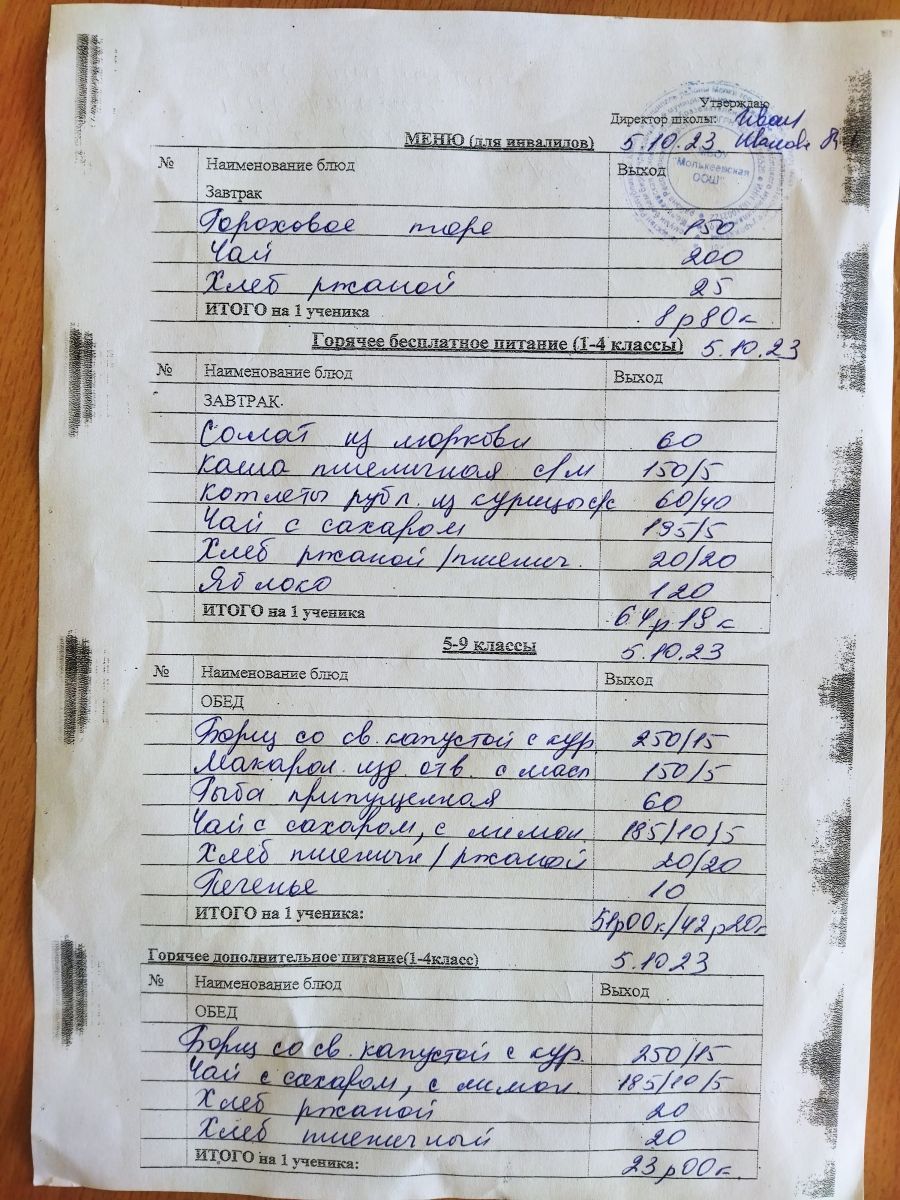 Утверждаю
Директор школы:
МЕНЮ (для инвалидов) 5.10.23
"Молькеевская
ООШ"
№ Наименование блюд Выход
Завтрак
Гороховое пюре 150
Чай 200
Хлеб ржаной 25
ИТОГО на 1 ученика 8р80к
Горячее бесплатное питание (1-4 классы) 5.10.23
№ Наименование блюд Выход
ЗАВТРАК
Салат из моркови 60
Каша пшеничная с/м 150/5
Котлеты рубл. из курицы с/с 60/40
Чай с сахаром 195/5
Хлеб ржаной/пшенич. 20/20
Яблоко 120
ИТОГО на 1 ученика 64р19к
5-9 классы 5.10.23
№ Наименование блюд Выход
ОБЕД
Борщ со св. капустой с кур. 250/15
Макарон. изд. отв. с масл 150/5
Рыба припущенная 60
Чай с сахаром, с лимон 185/10/5
Хлеб пшеничн/ржаной 20/20
Печенье 10
ИТОГО на 1 ученика: 51р00к/42р20к
Горячее дополнительное питание(1-4класс) 5.10 23
№ Наименование блюд Выход
ОБЕД
Борщ со св. капустой с кур. 250/15
Чай с сахаром, с лимон. 185/10/5
Хлеб ржаной 20
Хлеб пшеничный 20
ИТОГО на 1 ученика: 23р00к.